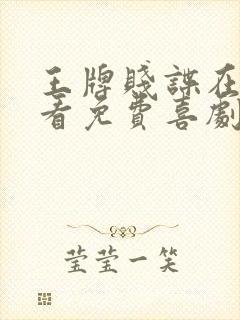 王牌賤諜在
看免費喜劇
莹莹一笑